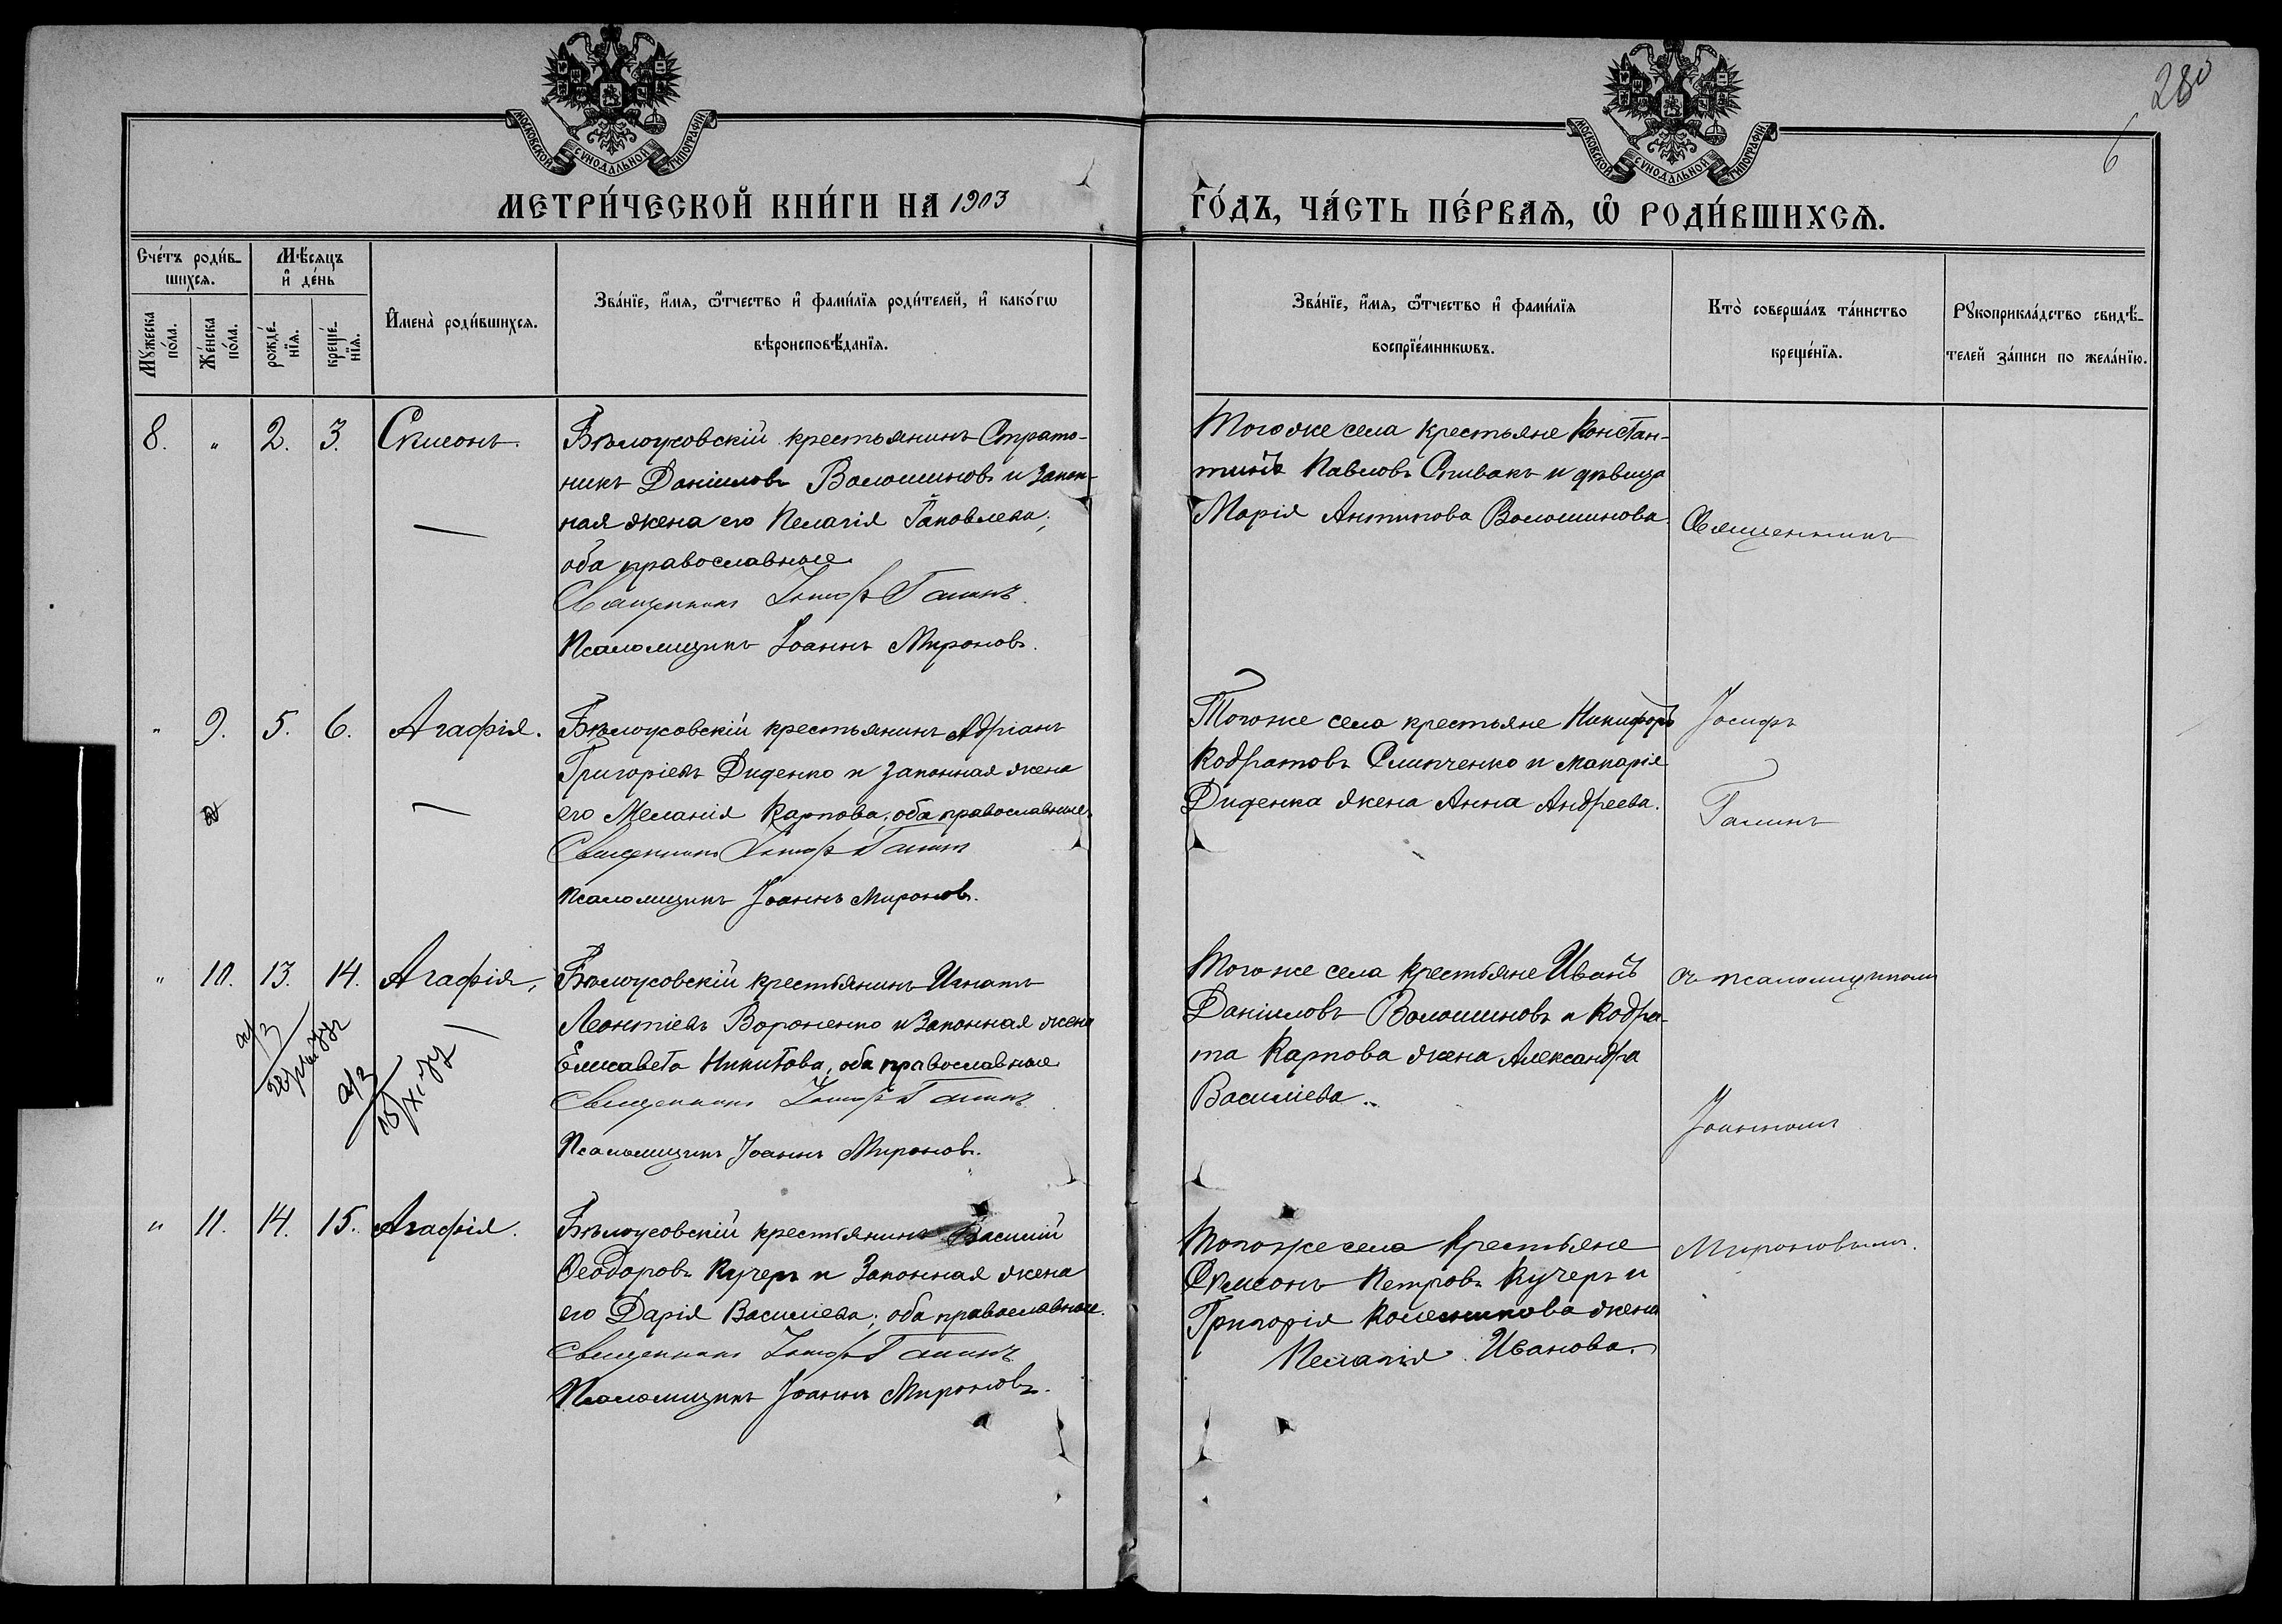 280
6
МОСКОВСКОЙ СѴНОДАЛЬНОЙ ТИПОГРАФІИ
МОСКОВСКОЙ СѴНОДАЛЬНОЙ ТИПОГРАФІИ
МЕТРИ́ЧЕСКОЙ КНИ́ГИ НА 1903
ГО́ДЪ, ЧА́СТЬ ПЕ́РВАѦ, Ѡ҆ РОДИ́ВШИХСѦ.
Сче́тъ роди́в-
шихсѧ.
Мꙋ́жеска
по́ла.
Же́нска
по́ла.
Мѣ́сѧцъ
и҆ де́нь
рожде́-
нїѧ.
креще́-
нїѧ.
И҆мена̀ роди́вшихсѧ.
Зва́нїе, и҆́мѧ, ѻ҆́тчество и҆ фами́лїѧ роди́телей, и҆ како́гѡ
вѣроисповѣ́данїѧ.
Зва́нїе, и҆́мѧ, ѻ҆́тчество и҆ фами́лїѧ
воспрїе́мникѡвъ.
Кто̀ соверша́лъ та́инство
креще́нїѧ.
Рꙋкоприкла́дство свидѣ́-
телей за́писи по жела́нїю.
8. " 2. 3. Симеонъ.
Бѣлоусовскій крестьянинъ Страто-
никъ Даніиловъ Волошиновъ и закон-
ная жена его Пелагія Іаковлева;
оба православные.
Священникъ Іосифъ Галинъ.
Псаломщикъ Іоаннъ Мироновъ.
Того же села крестьяне Констан-
тинъ Павловъ Спивакъ и дѣвица
Марія Антипова Волошинова.
Священникъ
" 9. 5. 6. Агафія.
Бѣлоусовскій крестьянинъ Адріанъ
Григоріевъ Диденко и законная жена
его Меланія Карпова; оба православные.
Священникъ Іосифъ Галинъ
Псаломщикъ Іоаннъ Мироновъ.
Того же села крестьяне Никифоръ
Кодратовъ Слипченко и Макарія
Диденка жена Анна Андреева.
Іосифъ
Галинъ
" 10. 13. 14. Агафія,
Бѣлоусовскій крестьянинъ Игнатъ
Леонтіевъ Вороненко и законная жена
Елисавета Никитова; оба православные
Священникъ Іосифъ Галинъ
Псаломщикъ Іоаннъ Мироновъ.
Того же села крестьяне Иванъ
Даніиловъ Волошиновъ и Кодра-
та Карпова жена Александра
Василіева.
съ псаломщикомъ
Іоанномъ
" 11. 14. 15. Агафія.
Бѣлоусовскій крестьянинъ Василій
Ѳеодоровъ Кучеръ и законная жена
его Дарія Василіева; оба православные.
Священникъ Іосифъ Галинъ
Псаломщикъ Іоаннъ Мироновъ.
Того же села крестьяне
Симеонъ Петровъ Кучеръ и
Григорія Колесникова жена
Пелагія Иванова.
Мироновымъ.